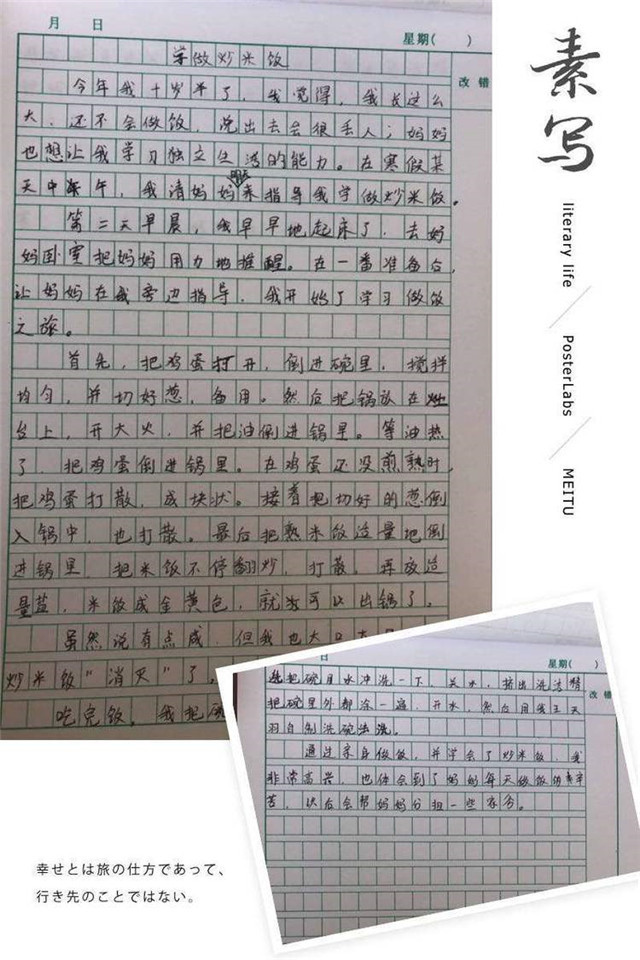 月 日
星期( )
学做炒米饭
改错
今年我十岁半了，我觉得，我长这么
大，还不会做饭，说出去会很丢人；妈妈
也想让我学习独立生活的能力。在寒假某
天中午，我请妈妈来指导我学做炒米饭。
第二天早晨，我早早地起床了，去妈
妈卧室把妈妈用力地推醒。在一番准备后，
让妈妈在我旁边指导，我开始了学习做饭
之旅。
首先，把鸡蛋打开，倒进碗里，搅拌
均匀，并切好葱，备用。然后把锅放在灶
台上，开大火，并把油倒进锅里。等油热
了，把鸡蛋倒进锅里。在鸡蛋还没煎熟时，
把鸡蛋打散，成块状。接着把切好的葱倒
入锅中，也打散。最后把熟米饭适量地倒
进锅里，把米饭不停翻炒，打散。再放适
量盐，米饭成金黄色，就可以出锅了。
虽然说有点咸，但我也大口
炒米饭“消灭”了。
吃完饭，我把碗
素写
literary life
PosterLabs
MEITU
日
星期( )
改错
先把碗用水冲洗一下，关水，挤出洗洁精
把碗里外都涂一遍，开水，然后用
自制洗碗
通过亲身做饭，并学会了炒米饭，我
非常高兴，也体会到了妈妈每天做饭的辛
苦，以后会帮妈妈分担一些家务。
幸せとは旅の仕方であって、
行き先のことではない。